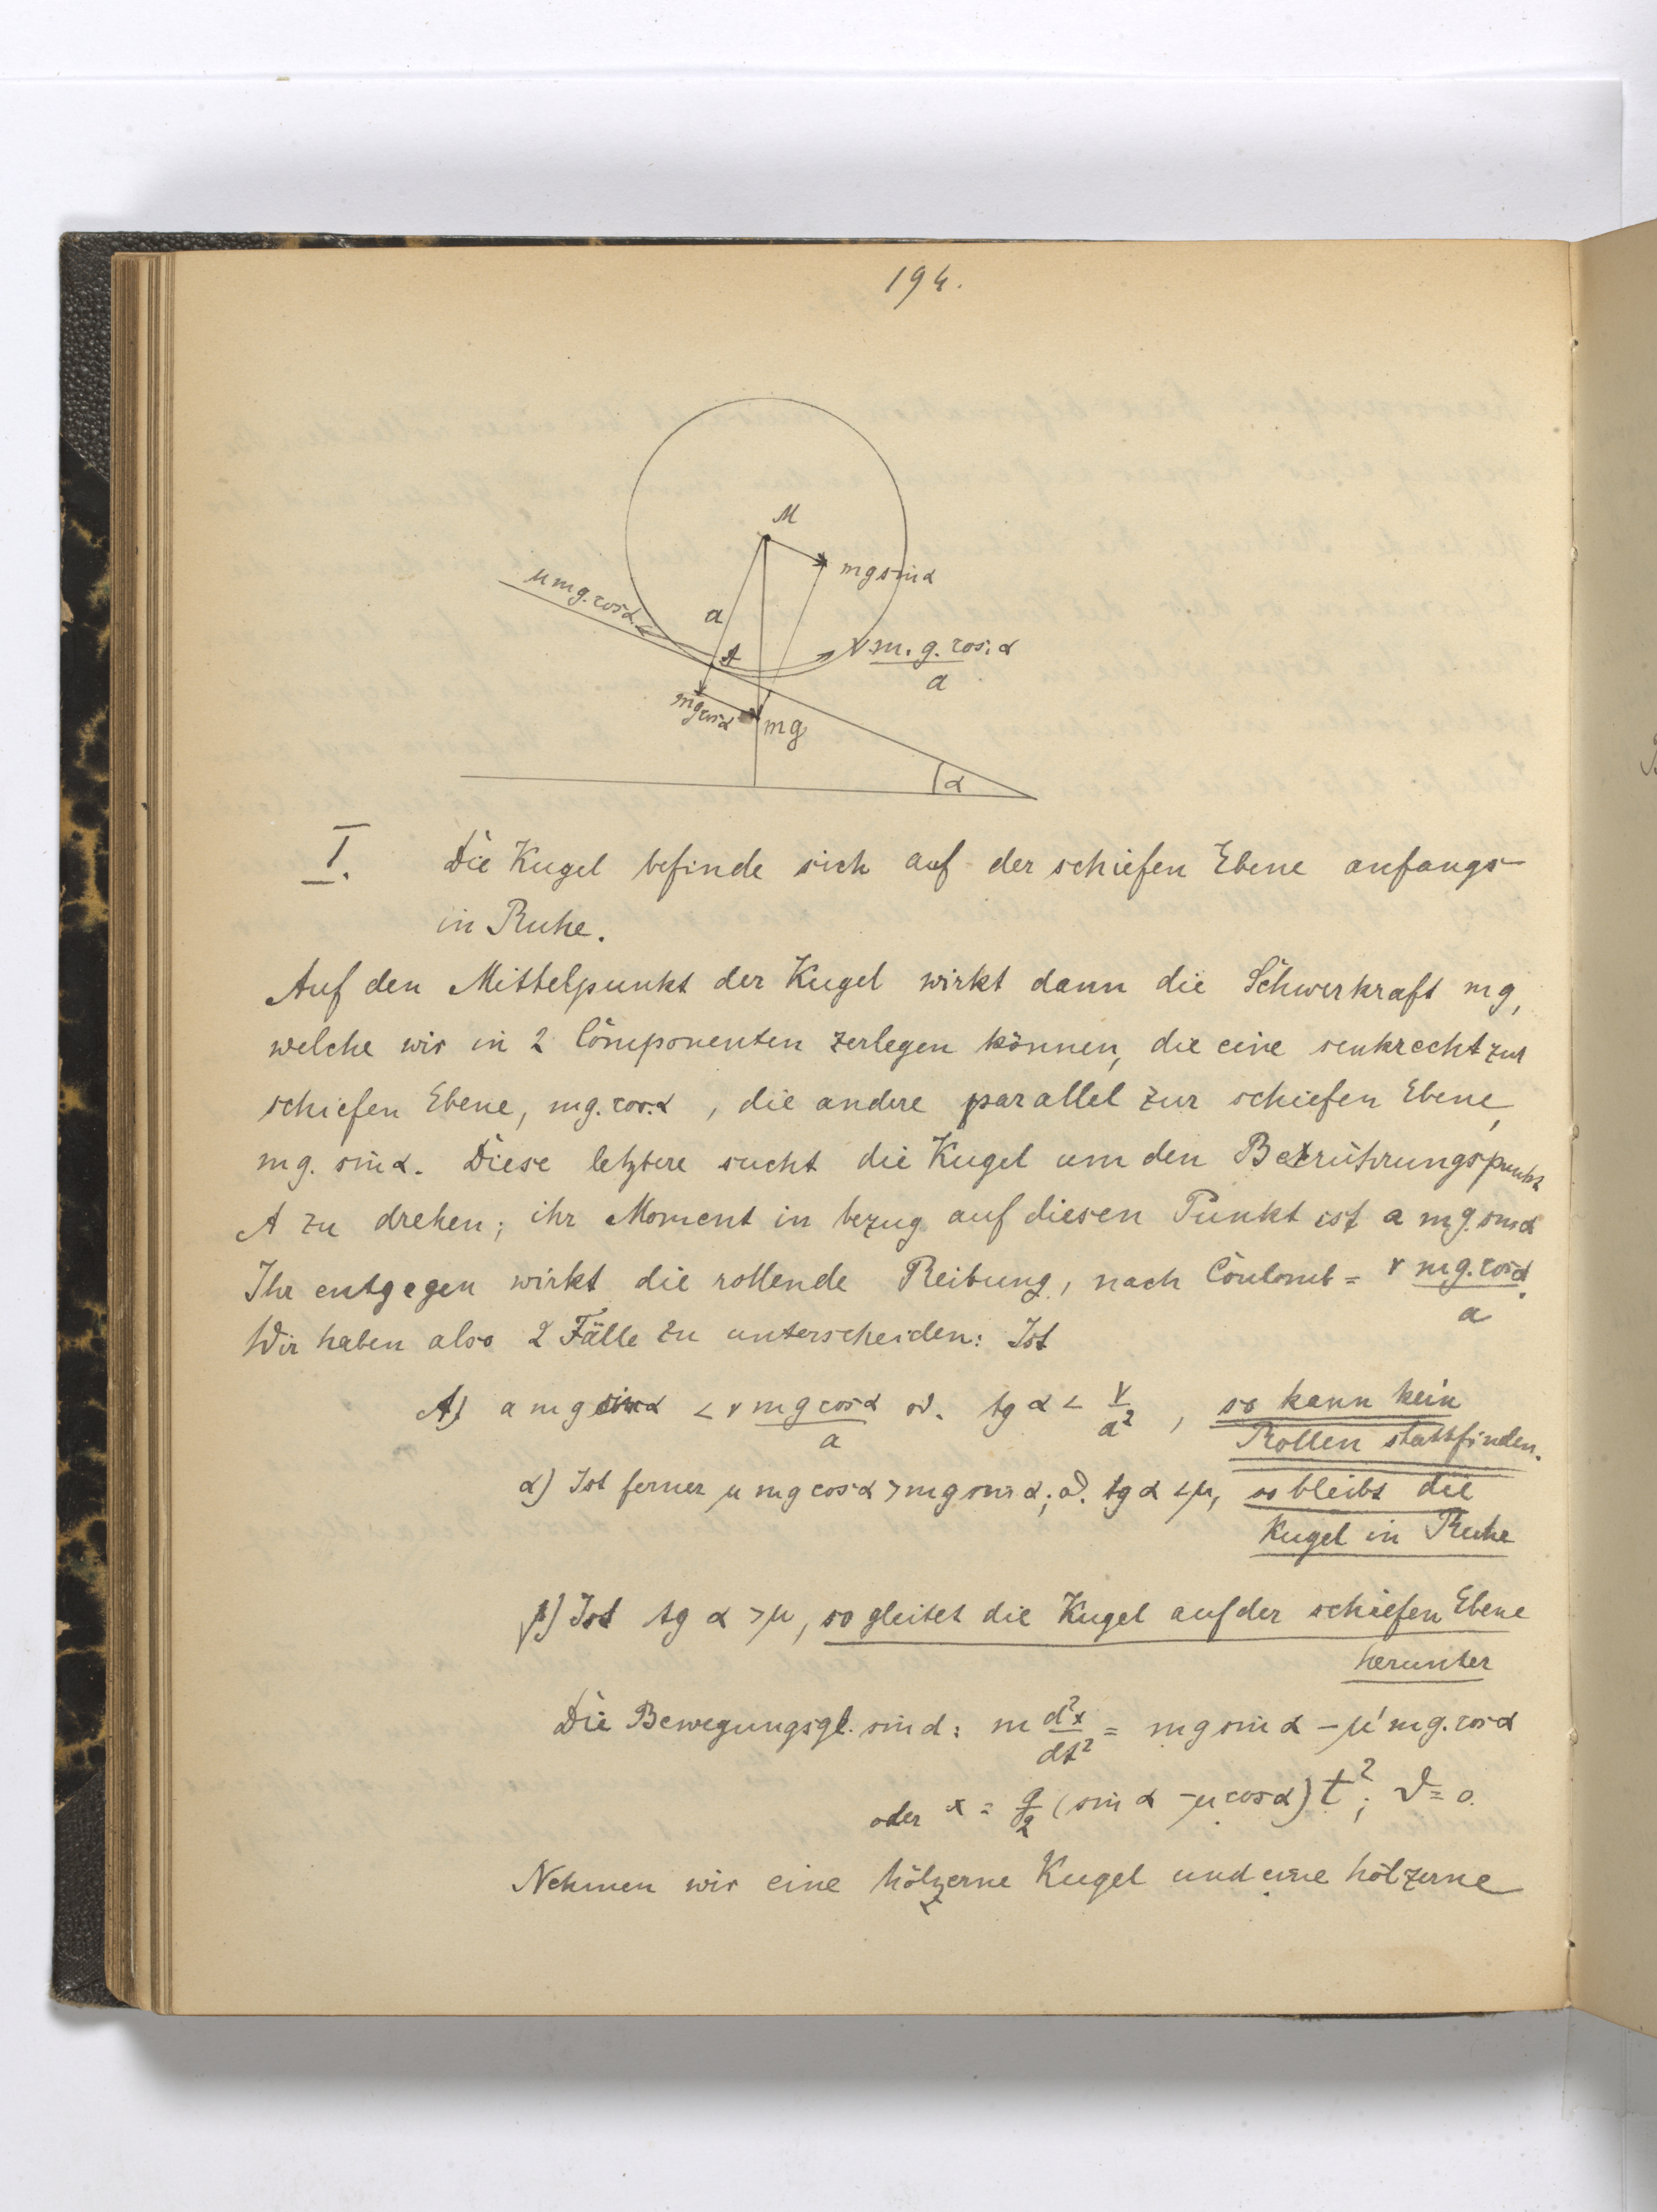 194.
M
mg sin α
μ mg. cos α
a
A
ν m. g. cos. α
a
mg cos α
mg
α
I. Die Kugel befinde sich auf der schiefen Ebene anfangs
in Ruhe.
Auf den Mittelpunkt der Kugel wirkt dann die Schwerkraft mg,
welche wir in 2 Componenten zerlegen können, die eine senkrecht zur
schiefen Ebene, mg. cos. α , die andere parallel zur schiefen Ebene,
mg. sin α. Diese letztere sucht die Kugel um den Berührungspunkt
A zu drehen; ihr Moment in bezug auf diesen Punkt ist a mg. sin α
Ihr entgegen wirkt die rollende Reibung, nach Coulomb = ν mg. cos α / a.
Wir haben also 2 Fälle zu unterscheiden: Ist
A) a mg sin α < ν mg cos α / a od. tg α < ν / a² , so kann kein
Rollen stattfinden.
α) Ist ferner μ mg cos α > mg sin α; od. tg α < μ, so bleibt die
Kugel in Ruhe
β) Ist tg α > μ, so gleitet die Kugel auf der schiefen Ebene
herunter
Die Bewegungsgl. sind: m d²x / dt² = mg sin α − μ' mg. cos α
oder x = g/2 (sin α − μ cos α) t² ; ϑ = 0.
Nehmen wir eine hölzerne Kugel und eine hölzerne